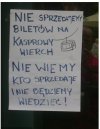 NIE SPRZEDAJEMY
BILETÓW NA
KASPROWY
WIERCH
NIE WIEMY
KTO SPRZEDAJE
I NIE BĘDZIEMY
WIEDZIEĆ!